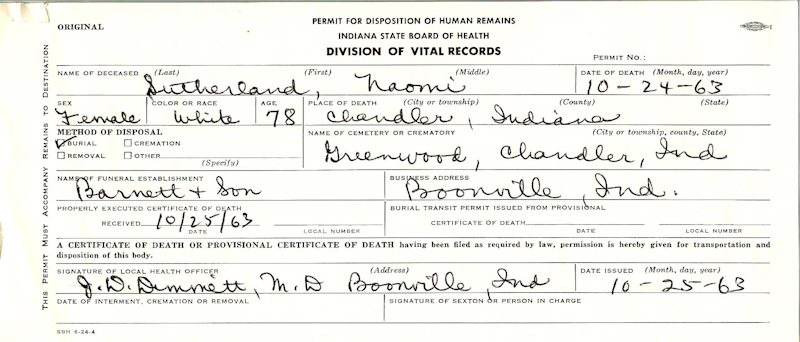 ORIGINAL
PERMIT FOR DISPOSITION OF HUMAN REMAINS
INDIANA STATE BOARD OF HEALTH
DIVISION OF VITAL RECORDS
PERMIT NO.:
NAME OF DECEASED (Last) (First) (Middle) DATE OF DEATH (Month, day, year)
Sutherland, Naomi 10-24-63
SEX COLOR OR RACE AGE PLACE OF DEATH (City or township) (County) (State)
Female White 78 Chandler, Indiana
METHOD OF DISPOSAL NAME OF CEMETERY OR CREMATORY (City or township, county, State)
BURIAL CREMATION
REMOVAL OTHER
Greenwood, Chandler, Ind
(Specify)
NAME OF FUNERAL ESTABLISHMENT BUSINESS ADDRESS
Barnett + Son Boonville, Ind.
PROPERLY EXECUTED CERTIFICATE OF DEATH BURIAL TRANSIT PERMIT ISSUED FROM PROVISIONAL
RECEIVED 10/25/63 CERTIFICATE OF DEATH
DATE LOCAL NUMBER DATE LOCAL NUMBER
A CERTIFICATE OF DEATH OR PROVISIONAL CERTIFICATE OF DEATH having been filed as required by law, permission is hereby given for transportation and
disposition of this body.
SIGNATURE OF LOCAL HEALTH OFFICER (Address) DATE ISSUED (Month, day, year)
J. D. Dimmett, M.D Boonville, Ind 10-25-63
DATE OF INTERMENT, CREMATION OR REMOVAL SIGNATURE OF SEXTON OR PERSON IN CHARGE
SBH 6-24-4
THIS PERMIT MUST ACCOMPANY REMAINS TO DESTINATION